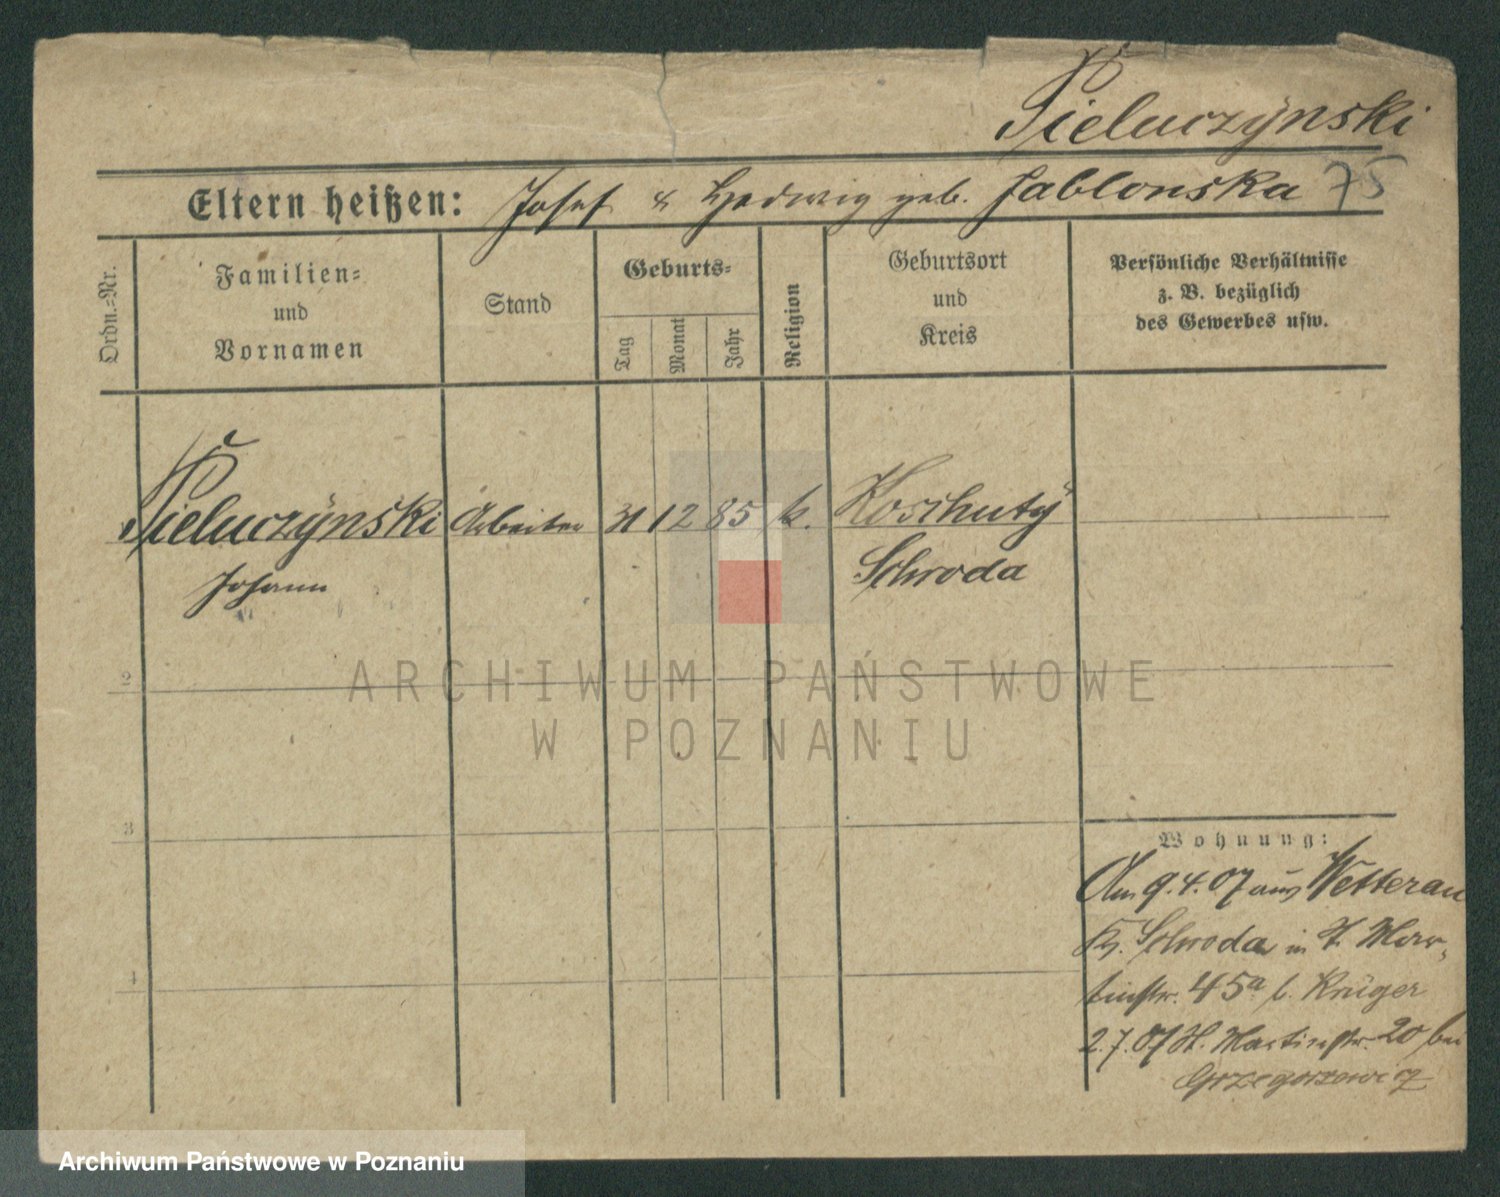 Pieluczÿnski
Eltern heißen: Josef & Hedwig geb. Jablonska 75
Ordn.-Nr.
Familien-
und
Vornamen
Stand
Geburts-
Tag
Monat
Jahr
Religion
Geburtsort
und
Kreis
Persönliche Verhältnisse
z. B. bezüglich
des Gewerbes usw.
Pieluczÿnski Arbeiter 31 12 85 k. Koschutÿ
Johann Schroda
2
3
4
Wohnung:
Am 9.4.07 aus Wetterau
Kr. Schroda in St. Mar-
tinstr. 45a b. Krüger
2.7.07 St. Martinstr. 20 bei
Grzegorzewicz
ARCHIWUM PAŃSTWOWE
W POZNANIU
Archiwum Państwowe w Poznaniu